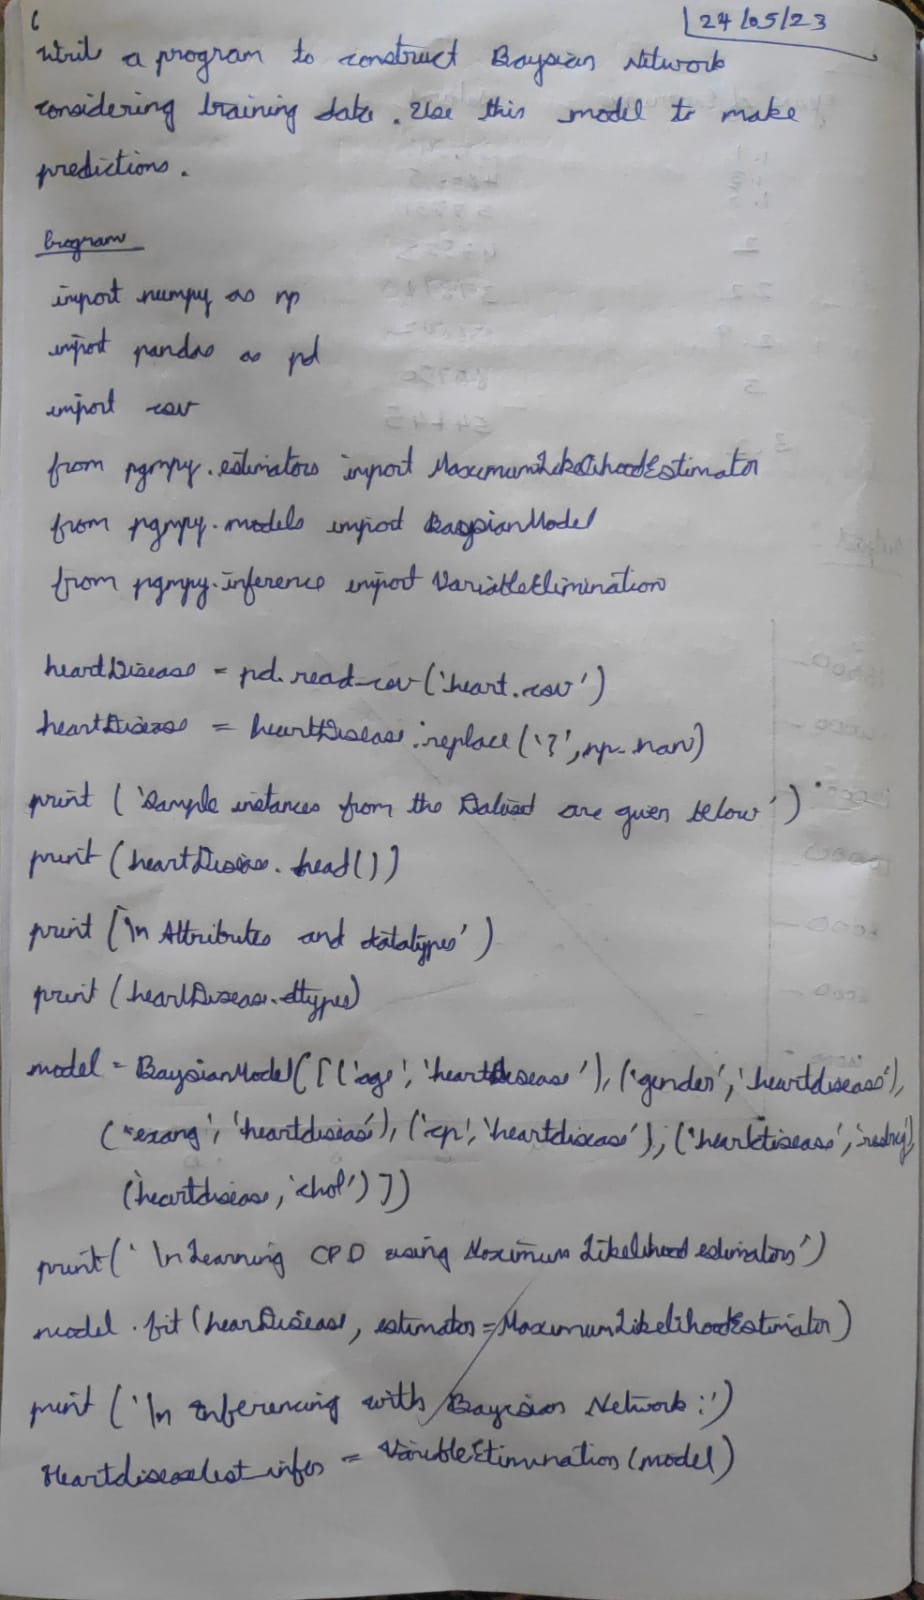 6
24/05/23
Write a program to construct Baysian Network
considering training data. Use this model to make
predictions.
Program
import numpy as np
import pandas as pd
import csv
from pgmpy.estimators import MaximumLikelihoodEstimator
from pgmpy.models import BaysianModel
from pgmpy.inference import VariableElimination
heartDisease = pd.read_csv('heart.csv')
heartDisease = heartDisease.replace('?', np.nan)
print ('Sample instances from the Dataset are given below')
print (heartDisease.head())
print ('\n Attributes and datatypes')
print (heartDisease.dtypes)
model = BaysianModel([('age', 'heartdisease'), ('gender', 'heartdisease'),
('exang', 'heartdisease'), ('cp', 'heartdisease'), ('heartdisease', 'restecg'),
('heartdisease, 'chol')])
print(' \n Learning CPD using Maximum Likelihood estimators')
model.fit (hearDisease, estimator=MaximumLikelihoodEstimator)
print ('\n Inferencing with Baysian Network:')
Heartdiseasetest_infer = VariableElimination (model)